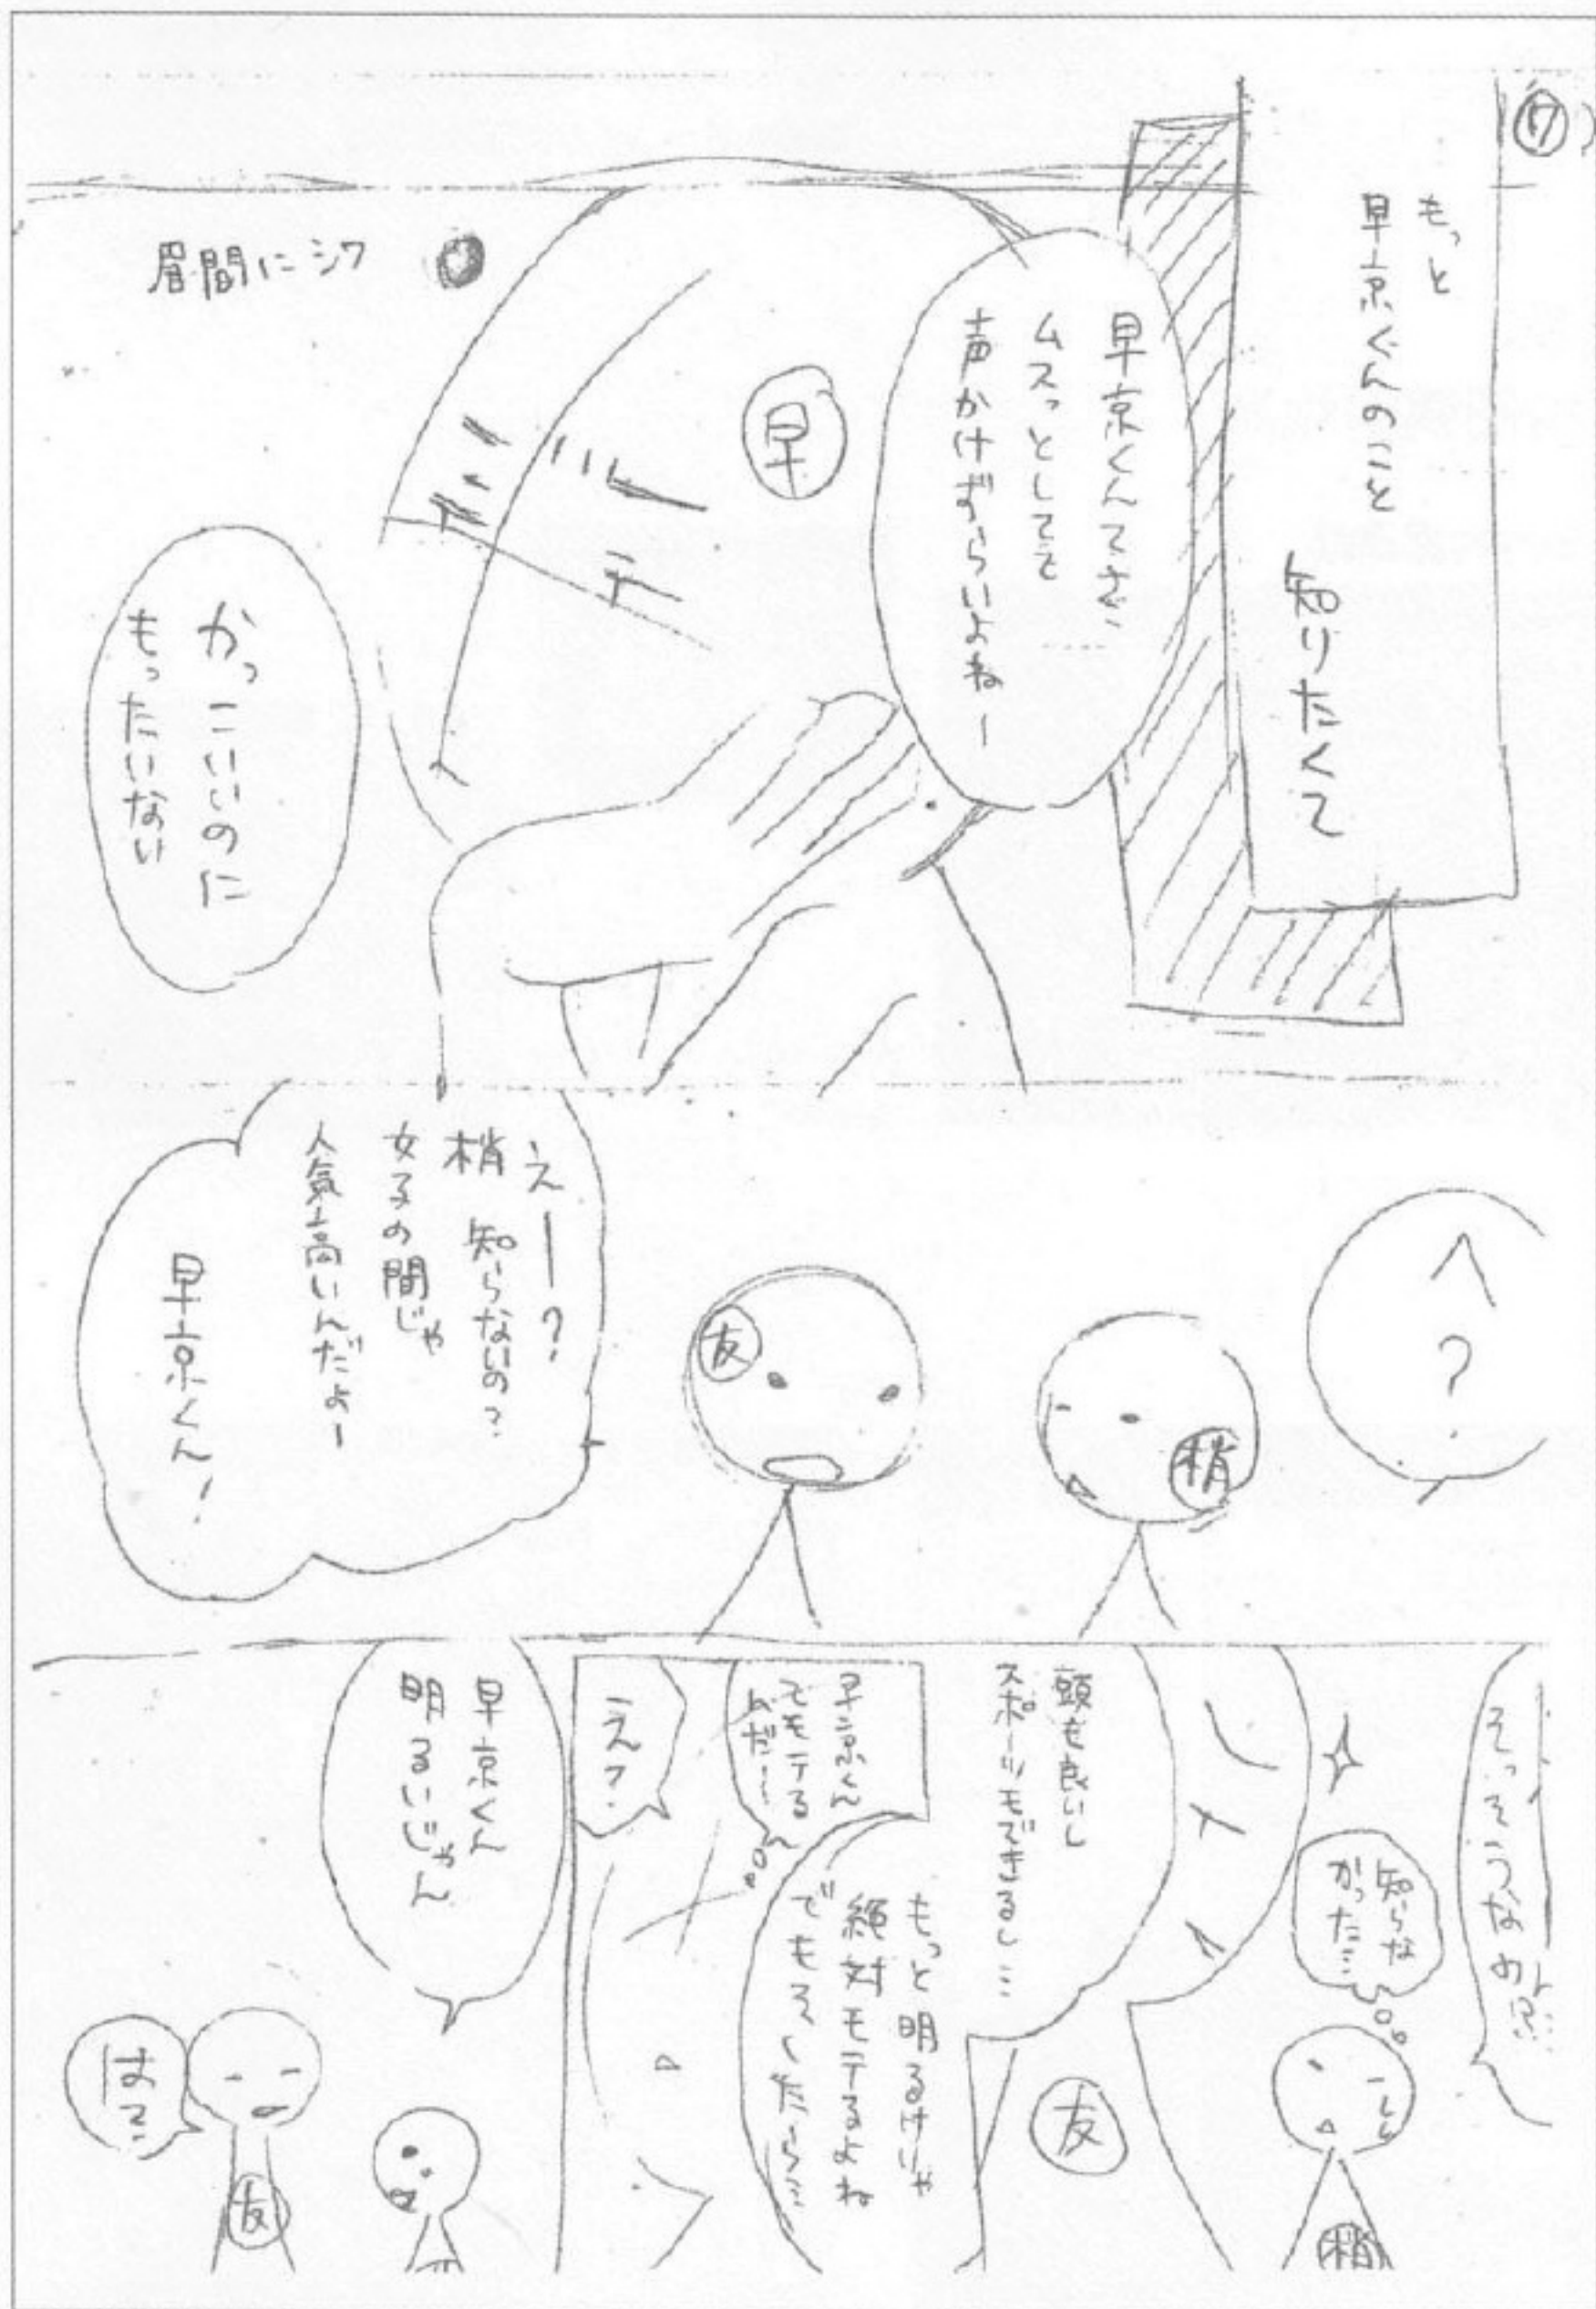 ⑦
もっと
早京くんのこと
知りたくて
早京くんてさ、
ムスっとしてて
声かけずらいよねー
早
眉間にシワ
かっこいいのに
もったいない
へ?
梢
友
えー?
梢 知らないの?
女子の間じゃ
人気高いんだよー
早京くん!
そっそうなの
知らな
かった…
梢
頭も良いし
スポーツもできるし…
友
もっと明るけりゃ
絶対モテるよね
早京くん
でモテる
んだ…
え?
早京くん
明るいじゃん
はっ
友